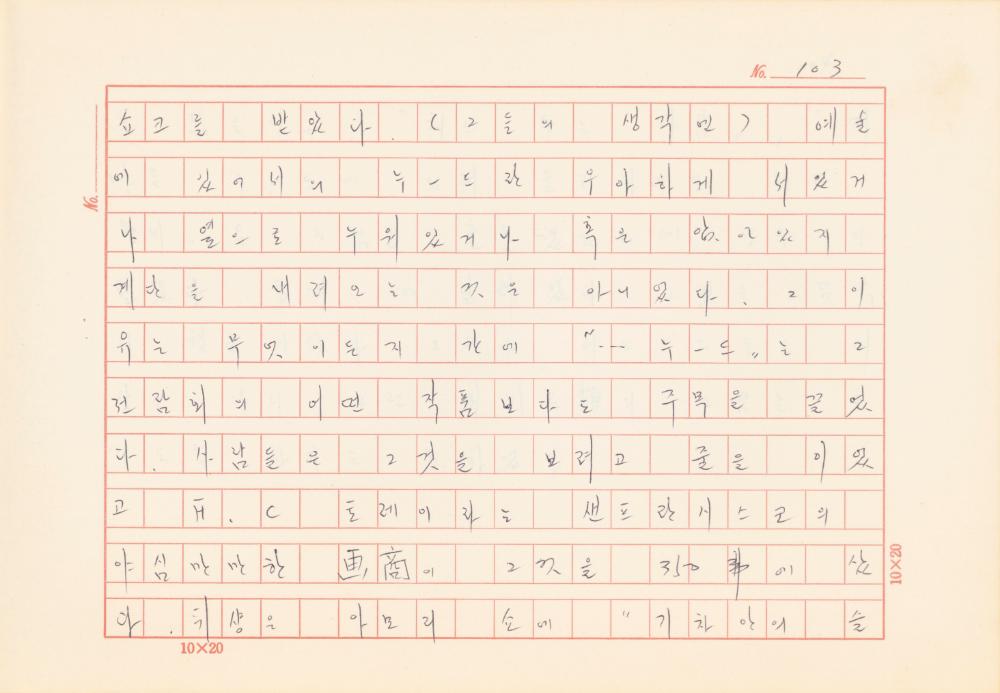 No. 103
쇼크를 받았다. (그들의 생각엔) 예술
에 있어서의 누-드란 우아하게 서있거
나 옆으로 누워있거나 혹은 앉아있지
계단을 내려오는 것은 아니었다. 그 이
유는 무엇이든지 간에 "… 누-드"는 그
전람회의 어떤 작품보다도 주목을 끌었
다. 사람들은 그것을 보려고 줄을 이었
고 H. C 토레이라는 샌프란시스코의
야심만만한 画商이 그것을 350弗에 샀
다. 뒤샹은 아모리 쇼에 "기차 안의 슬
No.
10×20
10×20